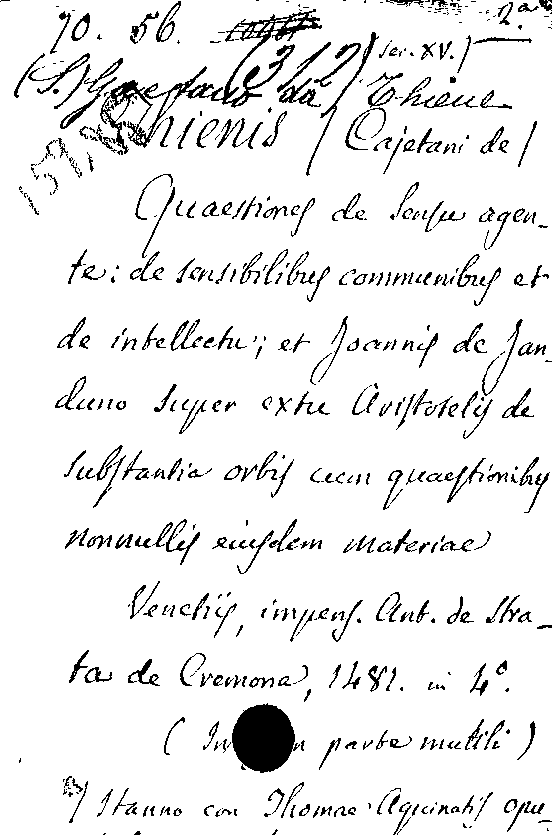 70. 5b. (312) (ser. XV.) 2.a
(S.) Gaetano da Thiene
Thienis (Cajetani de)
Quaestiones de Sensu agen-
te: de sensibilibus communibus et
de intellectu; et Joannis de Jan-
duno super extu Aristotelis de
substantia orbis cum quaestionibus
nonnullis eiusdem materiae
Venetiis, impens. Ant. de Stra-
ta de Cremona, 1481. in 4°.
( In n parte mutili )
Stanno con Thomae Aquinatis opu-